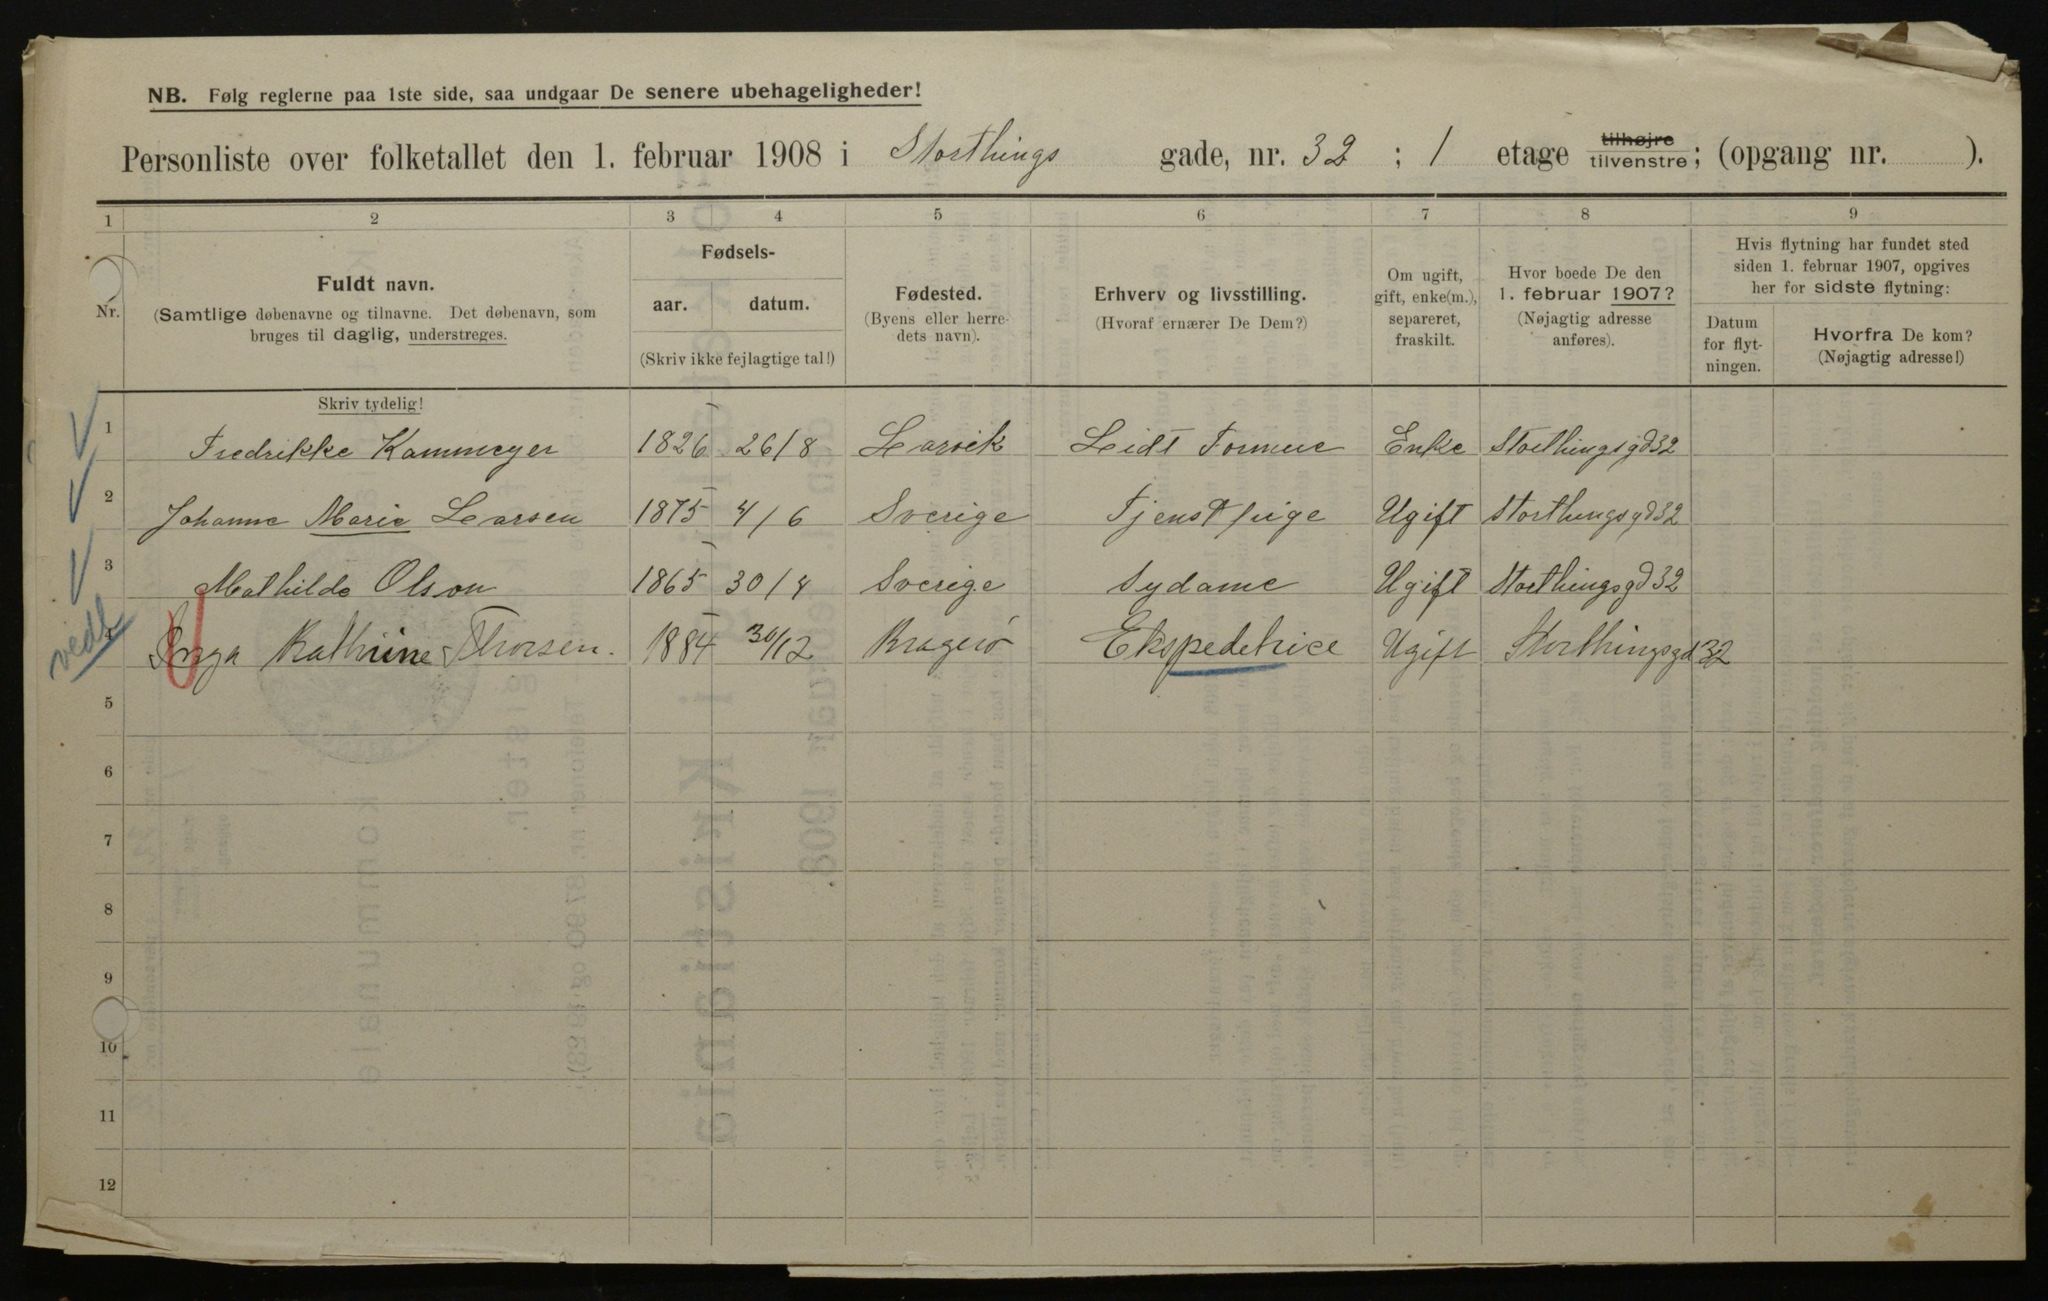 NB. Følg reglerne paa 1ste side, saa undgaar De senere ubehageligheder!
Personliste over folketallet den 1. februar 1908 i Storthings gade, nr. 32 ; 1 etage tilhøjre tilvenstre; (opgang nr. ).
1 2 3 4 5 6 7 8 9
Nr.
Fuldt navn.
(Samtlige døbenavne og tilnavne. Det døbenavn, som
bruges til daglig, understreges.
Fødsels-
aar. datum.
(Skriv ikke fejlagtige tal!)
Fødested.
(Byens eller herre-
dets navn).
Erhverv og livsstilling.
(Hvoraf ernærer De Dem?)
Om ugift,
gift, enke(m.),
separeret,
fraskilt.
Hvor boede De den
1. februar 1907?
(Nøjagtig adresse
anføres).
Hvis flytning har fundet sted
siden 1. februar 1907, opgives
her for sidste flytning:
Datum
for flyt-
ningen.
Hvorfra De kom?
(Nøjagtig adresse!)
Skriv tydelig!
1 Fredrikke Kammeyer 1826 26/8 Larvik Leidt Formue Enke Storthingsgd 32
2 Johanne Marie Larsen 1875 4/6 Sverige Tjenstpige Ugift Storthingsgd 32
3 Mathilde Olson 1865 30/4 Sverige Sydame Ugift Storthingsgd 32
vedl.
4 Inga Kathrine Thorsen. 1884 30/12 Kragerö Ekspedetrice Ugift Storthingsgd 32
5
6
7
8
9
10
11
12